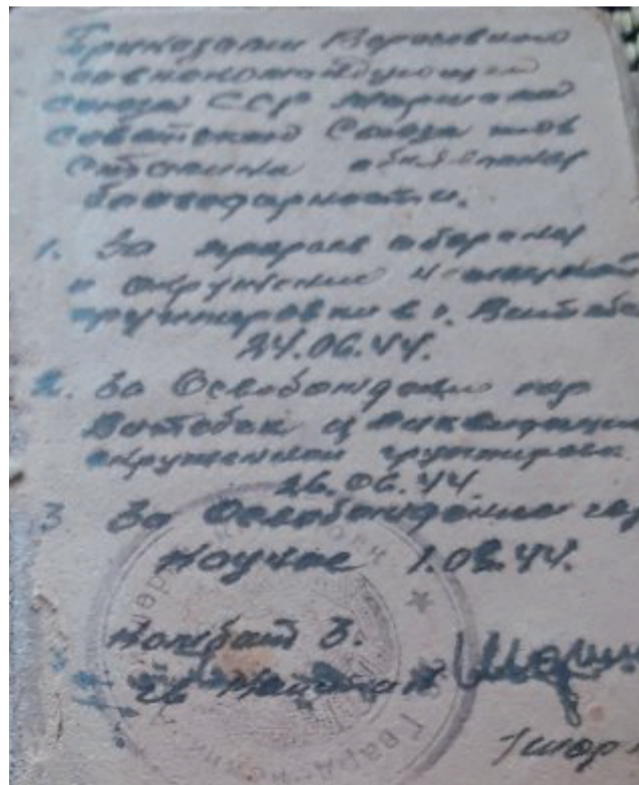 Приказами Верховного
главнокомандующего
союза ССР маршала
Советского Союза тов
Сталина объявлена
благодарность.
1. За прорыв обороны
и окружение
группировки в г. Витебск
24.06.44.
2. За Освобождение гор
Витебск и ликвидацию
окруженной группировки
26.06.44
3 За Освобождение гор
Каунас 1.08.44.
Комбат 3.
Гв
Гвардейский